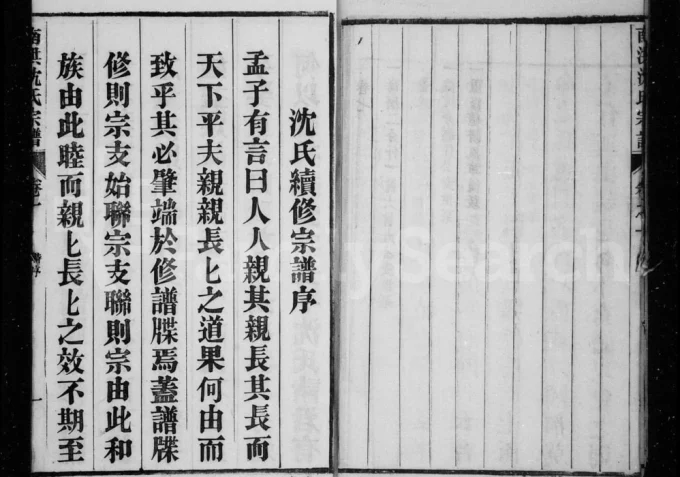 沈氏續修宗譜序
孟子有言曰人人親其親長其長而
天下平夫親親長匕之道果何由而
致乎其必肇端於修譜牒焉蓋譜牒
修則宗支始聯宗支聯則宗由此和
族由此睦而親匕長匕之效不期至
沈氏宗譜
卷一
一
FamilySearch